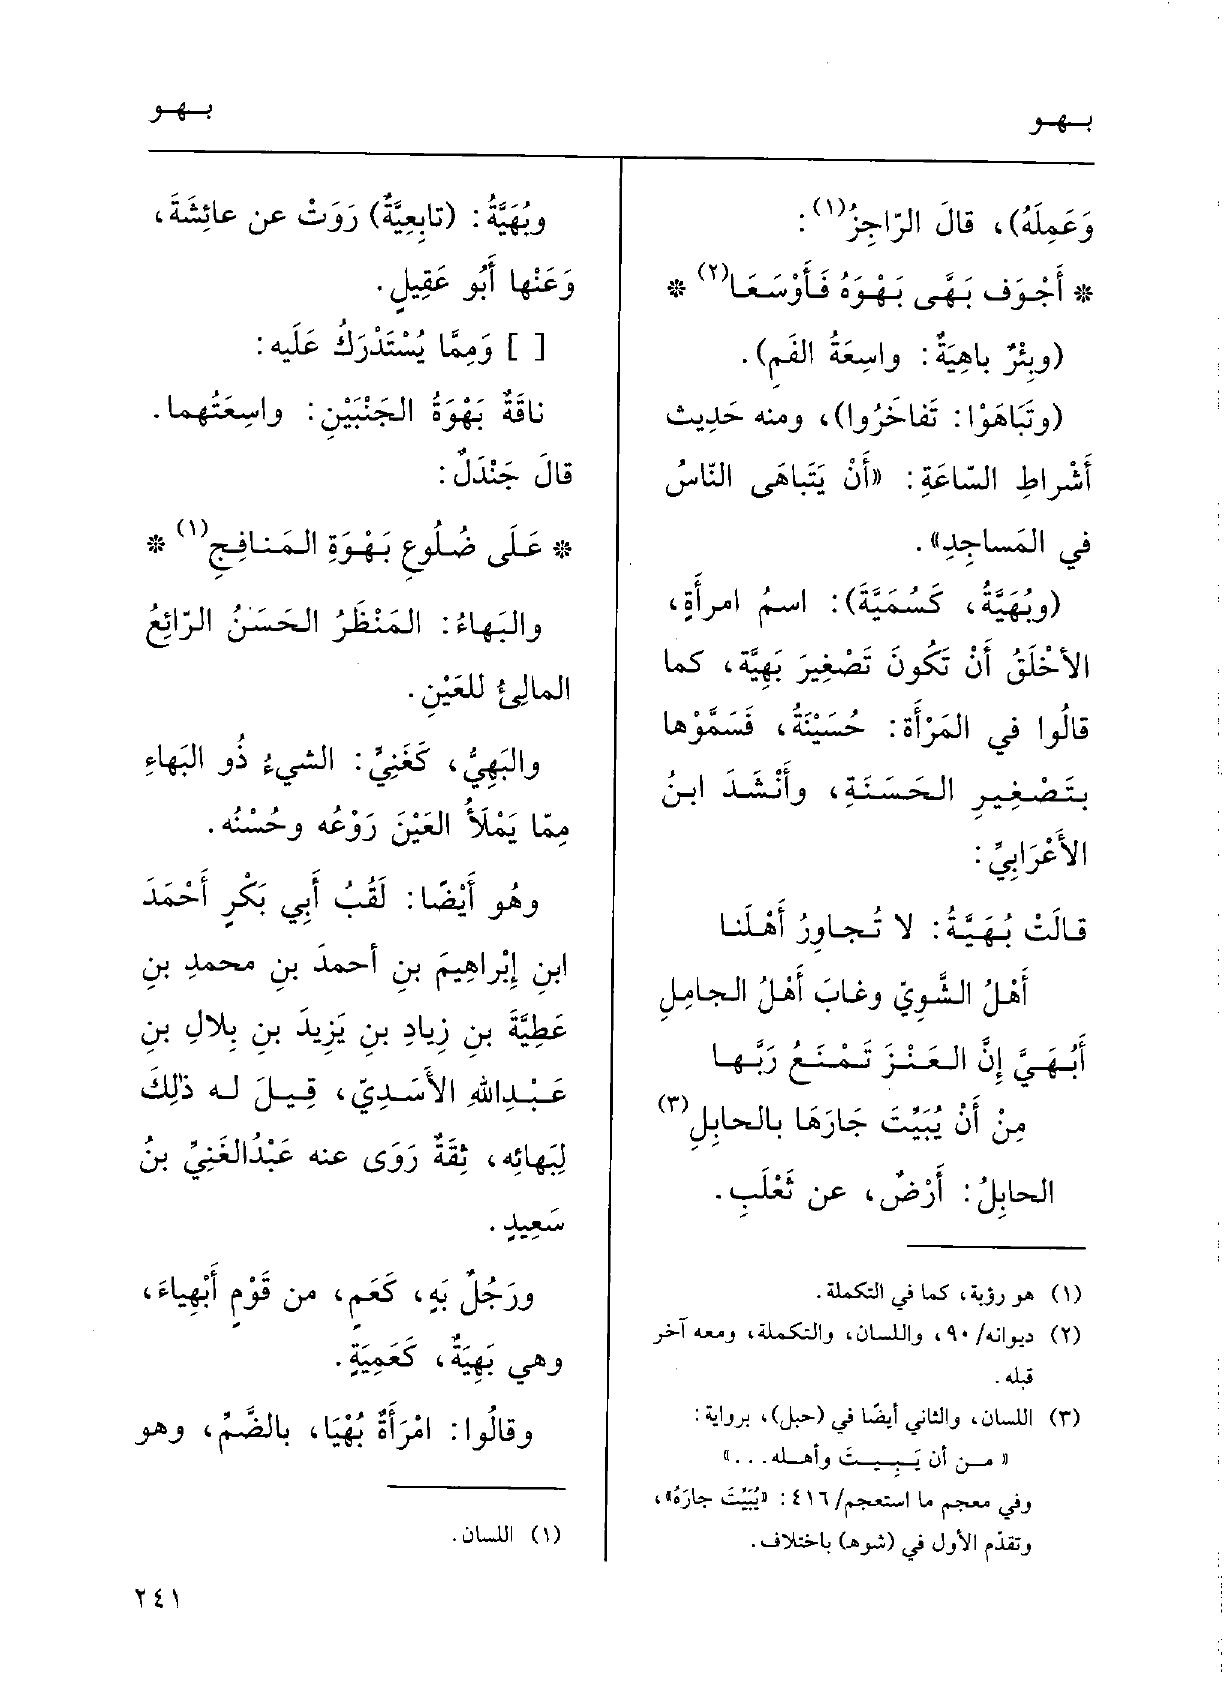 بهو
بهو
وَعَمِلَهُ)، قالَ الرّاجِزُ(١):
* أَجْوَف بَهَّى بَهْوَهُ فَأَوْسَعَا(٢) *
(وبِئْرٌ باهِيَةٌ: واسِعَةُ الفَمِ).
(وتَبَاهَوْا: تَفاخَرُوا)، ومنه حَدِيث
أَشْراطِ السّاعَةِ: «أَنْ يَتَباهَى النّاسُ
في المَساجِدِ».
(وبُهَيَّةُ، كَسُمَيَّةَ): اسمُ امرأَةٍ،
الأخْلَقُ أَنْ تَكُونَ تَصْغِيرَ بَهِيَّة، كما
قالُوا في المَرْأَة: حُسَيْنَةُ، فَسَمَّوْها
بتَصْغِيرِ الحَسَنَةِ، وأَنْشَدَ ابنُ
الأَعْرَابِيِّ:
قالَتْ بُهَيَّةُ: لا تُجاوِرُ أَهْلَنا
أَهْلُ الشَّوِيّ وغابَ أَهْلُ الجامِلِ
أَبُهَيَّ إِنَّ العَنْزَ تَمْنَعُ رَبَّها
مِنْ أَنْ يُبَيِّتَ جَارَهَا بالحابِلِ(٣)
الحابِلُ: أَرْضٌ، عن ثَعْلَبٍ.
(١) هو رؤبة، كما في التكملة.
(٢) ديوانه/٩٠، واللسان، والتكملة، ومعه آخر
قبله.
(٣) اللسان، والثاني أيضًا في (حبل)، برواية:
«من أن يَبِيتَ وأهله...»
وفي معجم ما استعجم/٤١٦: «يُبَيِّتَ جارَهُ»،
وتقدّم الأول في (شوه) باختلاف.
وبُهَيَّةُ: (تابِعِيَّةٌ) رَوَتْ عن عائِشَةَ،
وَعَنْها أَبُو عَقِيلٍ.
[ ] وَمِمَّا يُسْتَدْرَكُ عَلَيه:
ناقَةٌ بَهْوَةُ الجَنْبَيْنِ: واسِعَتُهما.
قالَ جَنْدَلٌ:
* عَلَى ضُلُوعٍ بَهْوَةِ المَنافِجِ(١) *
والبَهاءُ: المَنْظَرُ الحَسَنُ الرّائِعُ
المالِئُ للعَيْنِ.
والبَهِيُّ، كَغَنِيٍّ: الشيءُ ذُو البَهاءِ
مِمّا يَمْلأُ العَيْنَ رَوْعُه وحُسْنُه.
وهُو أَيْضًا: لَقَبُ أَبِي بَكْرٍ أَحْمَدَ
ابنِ إِبْراهِيمَ بنِ أحمدَ بنِ محمدِ بنِ
عَطِيَّةَ بنِ زِيادِ بنِ يَزِيدَ بنِ بِلالِ بنِ
عَبْدِالله الأَسَدِيّ، قِيلَ له ذلِكَ
لِبَهائِه، ثِقَةٌ رَوَى عنه عَبْدُالغَنِيِّ بنُ
سَعِيدٍ.
ورَجُلٌ بَهٍ، كَعَمٍ، من قَوْمٍ أَبْهِياءَ،
وهي بَهِيَةٌ، كَعَمِيَةٍ.
وقالُوا: امْرَأَةٌ بُهْيَا، بالضَّمِّ، وهو
(١) اللسان.
٢٤١